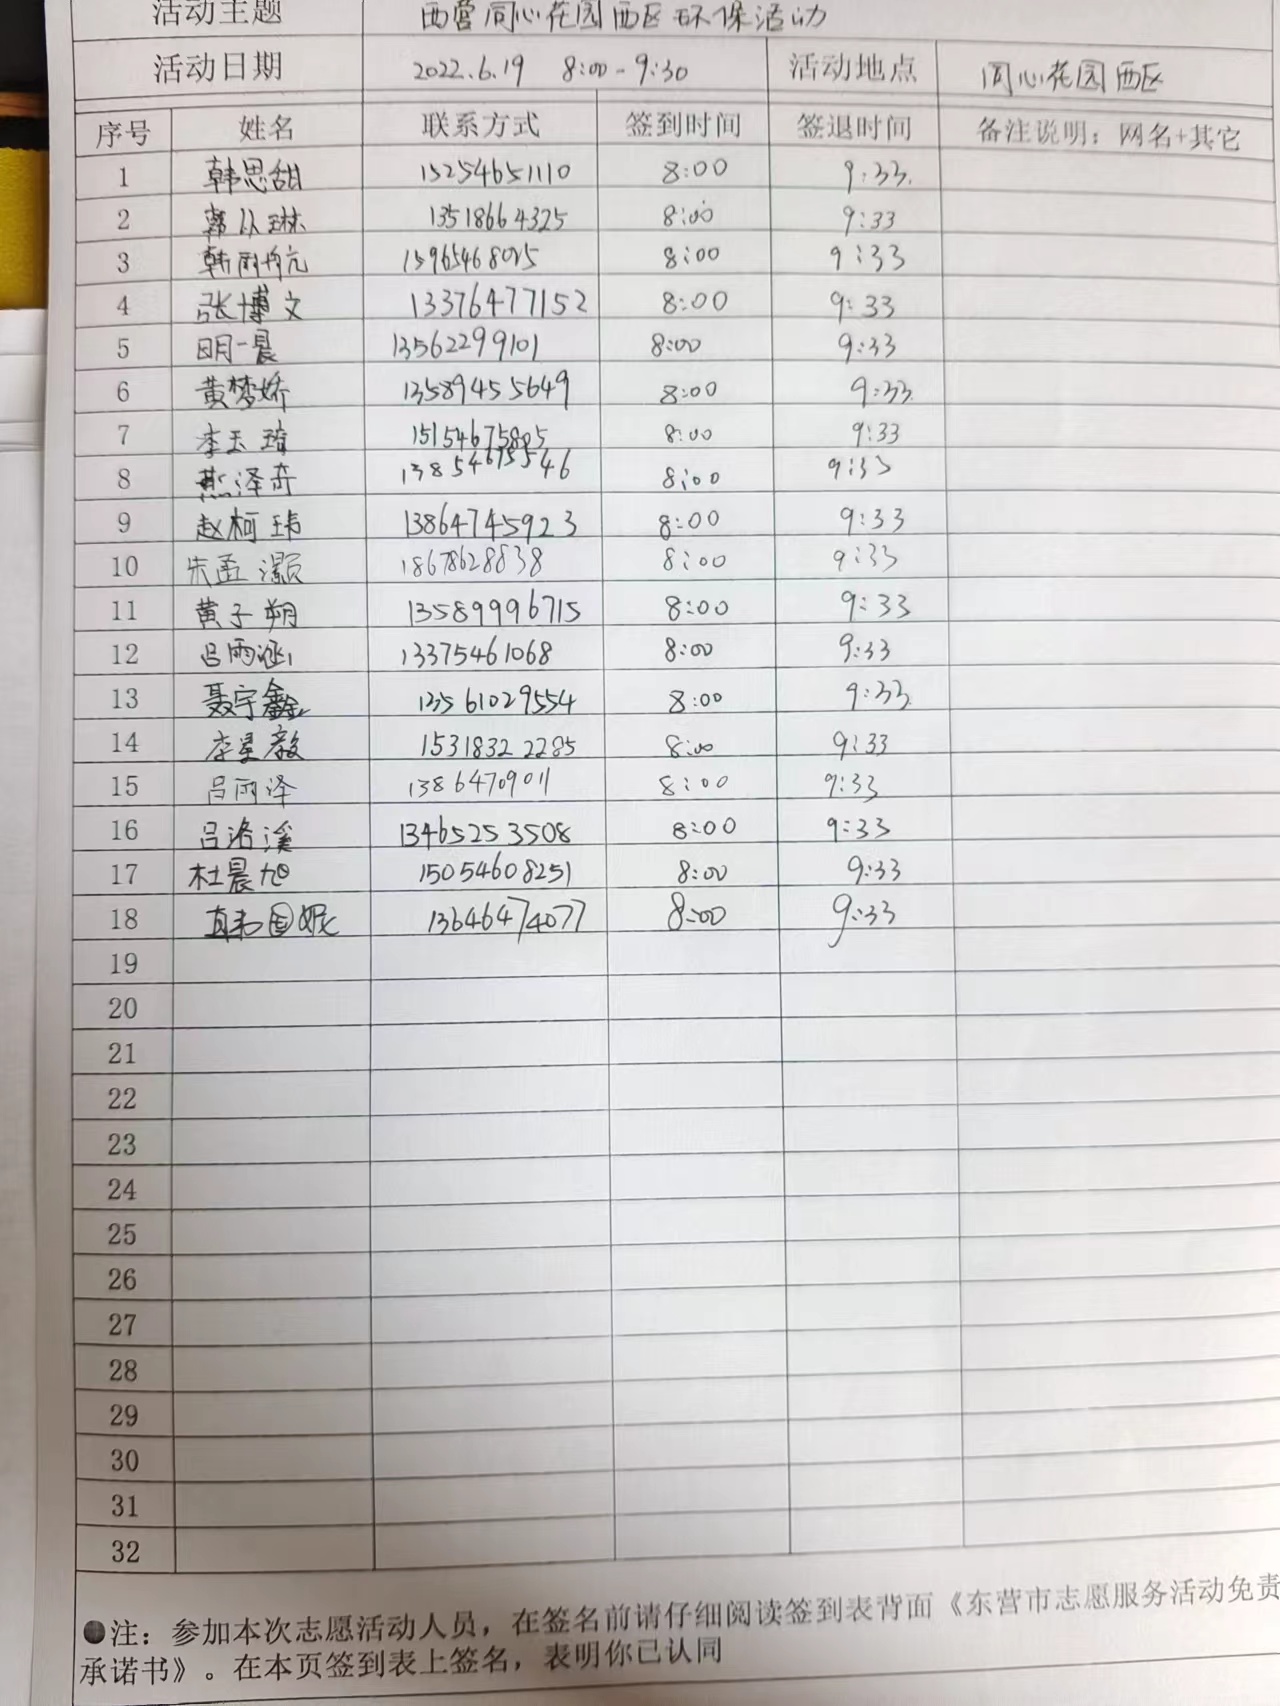 活动主题 西营同心花园西区环保活动
活动日期 2022.6.19 8:00-9:30 活动地点 同心花园西区
序号 姓名 联系方式 签到时间 签退时间 备注说明：网名+其它
1 韩思甜 15254651110 8:00 9:33
2 13518664325 8:00 9:33
3 8:00 9:33
4 张博文 13376477152 8:00 9:33
5 明一晨 13562299101 8:00 9:33
6 黄梦娇 13589455649 8:00 9:33
7 李玉琦 15154675805 8:00 9:33
8 燕泽卉 13854675546 8:00 9:33
9 赵柯玮 13864745923 8:00 9:33
10 朱孟灏 18678628838 8:00 9:33
11 黄子朔 13589996715 8:00 9:33
12 吕雨涵 13375461068 8:00 9:33
13 聂宇鑫 13561029554 8:00 9:33
14 李星毅 15318322285 8:00 9:33
15 吕雨泽 13864709011 8:00 9:33
16 吕洛溪 13465253508 8:00 9:33
17 杜晨旭 15054608251 8:00 9:33
18 韩国妮 13646474077 8:00 9:33
19
20
21
22
23
24
25
26
27
28
29
30
31
32
●注：参加本次志愿活动人员，在签名前请仔细阅读签到表背面《东营市志愿服务活动免责
承诺书》。在本页签到表上签名，表明你已认同